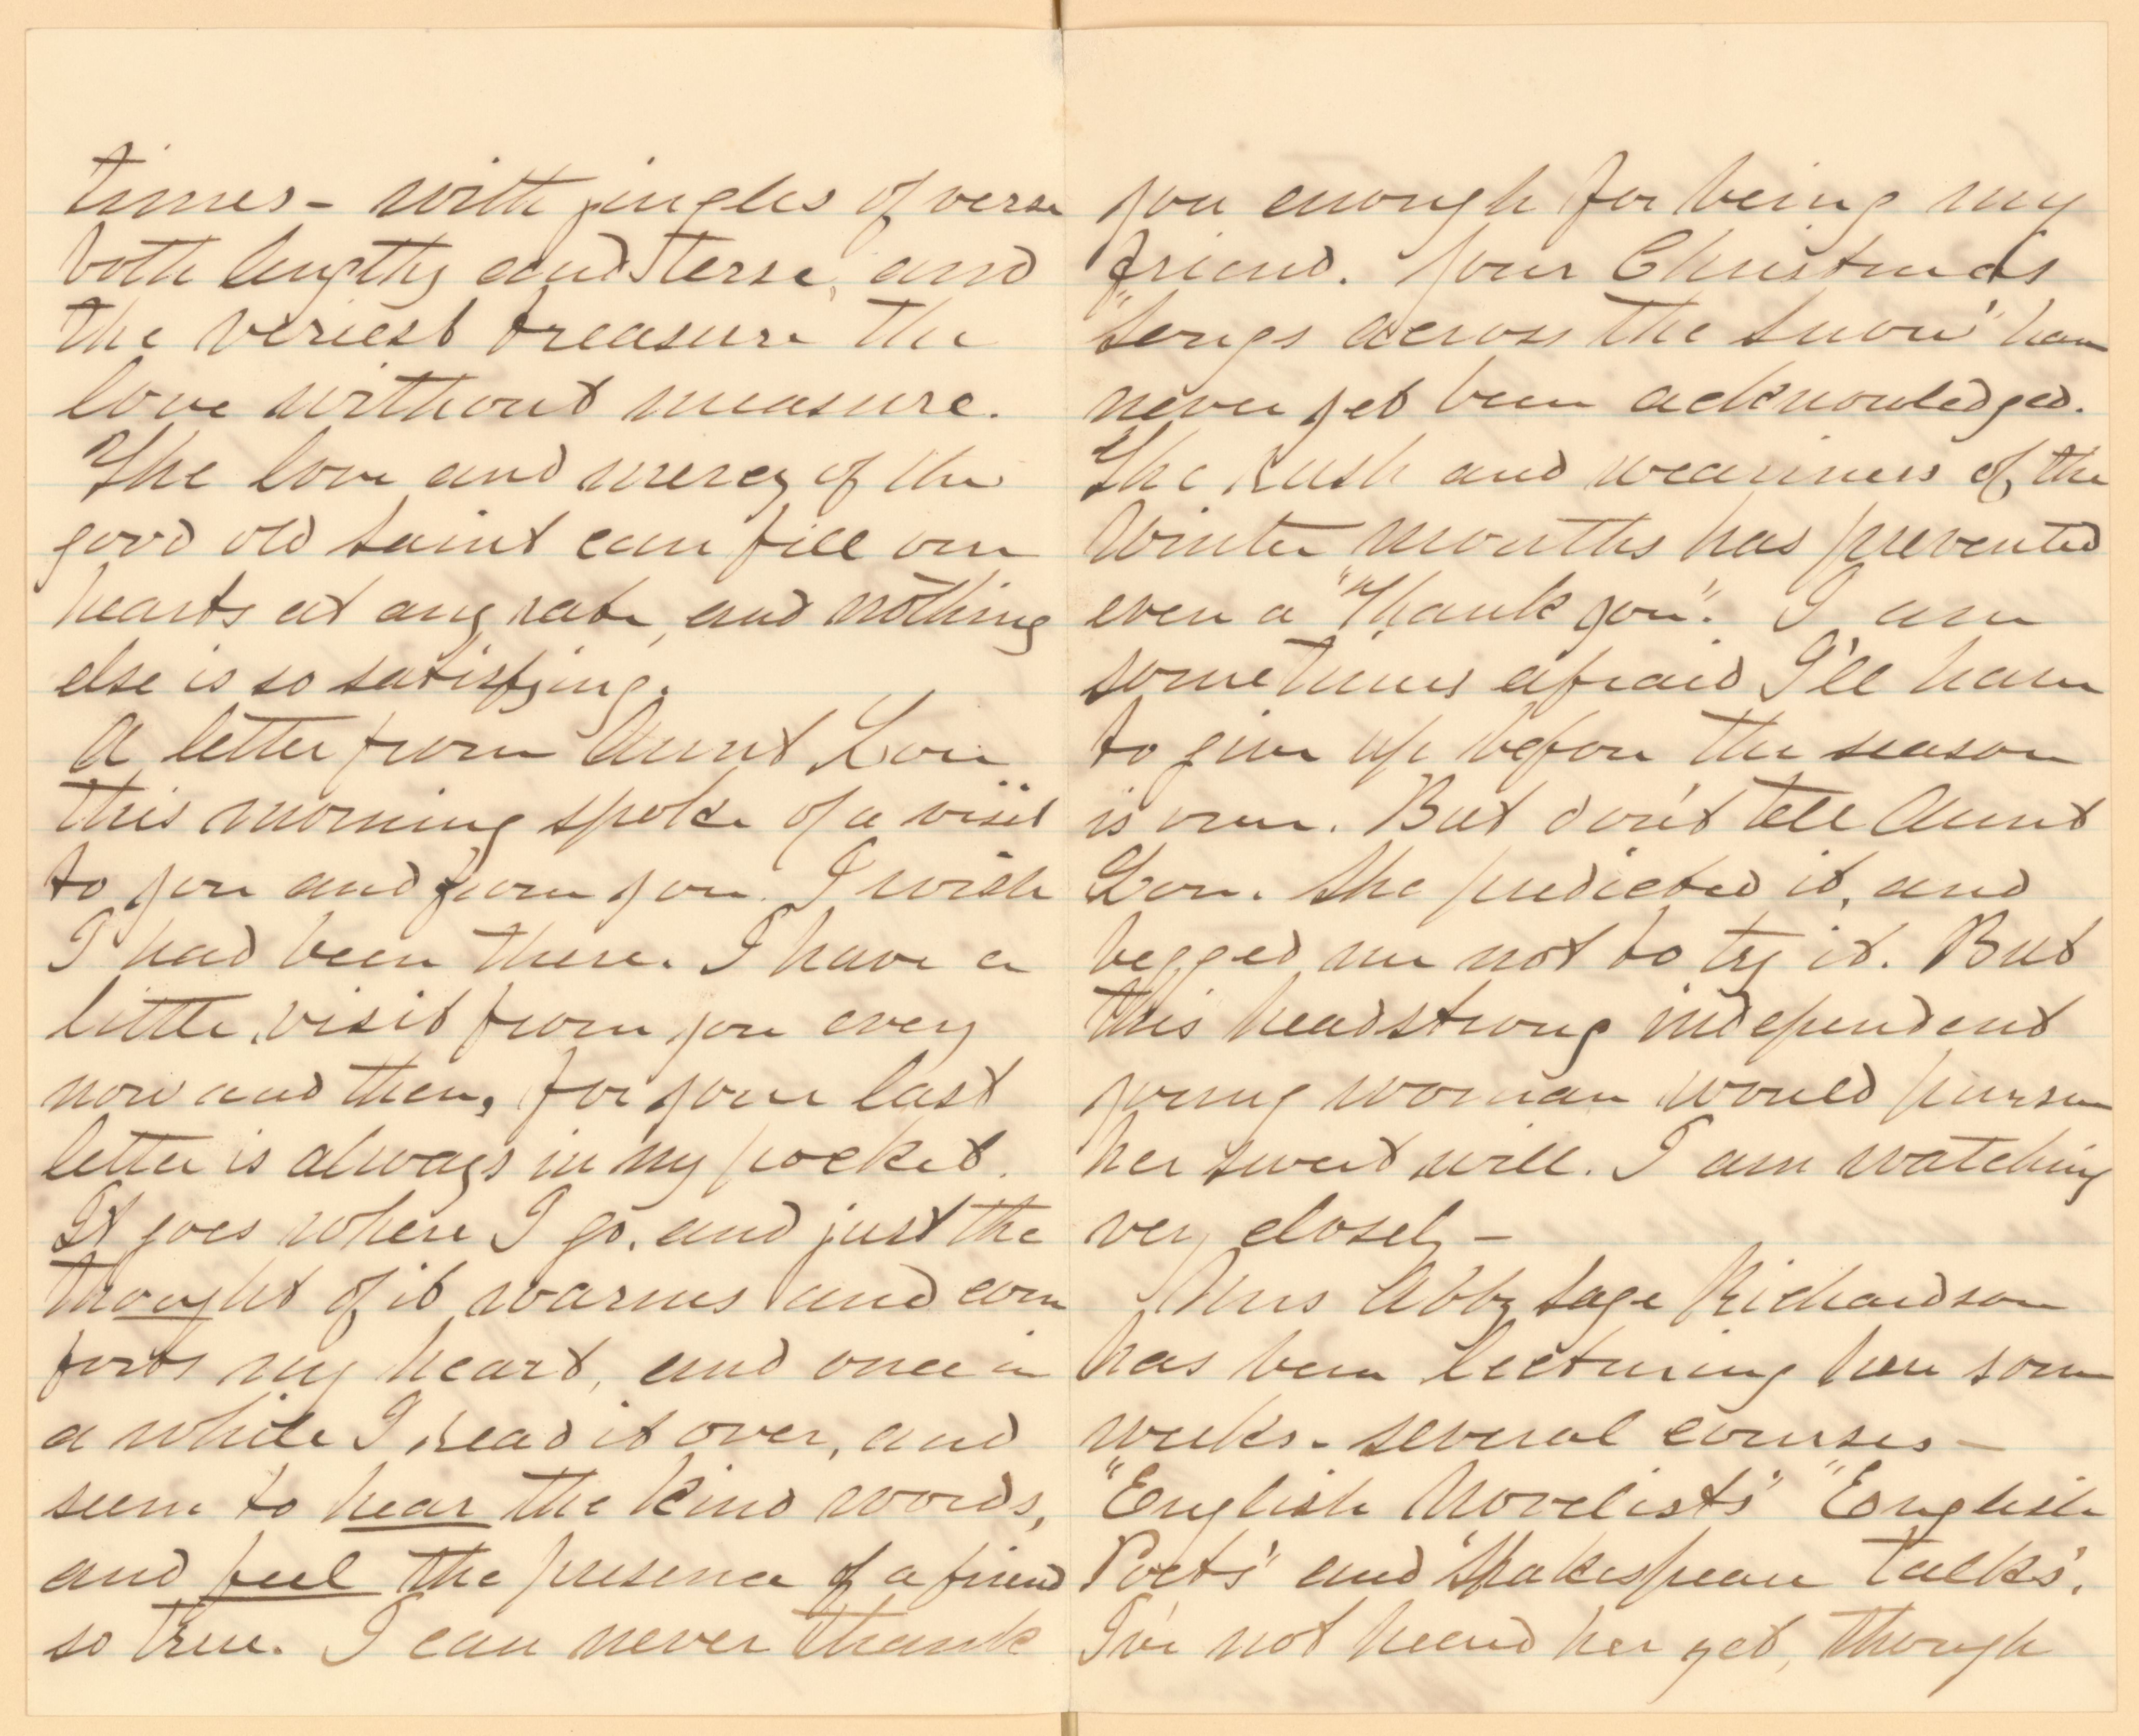 times - with jingles of verse
both lengthy and terse, and
the veriest treasure the
love without measure.
The love and mercy of the
good old Saint can fill our
hearts at any rate, and nothing
else is so satisfying.
A letter from Aunt Lou
this morning spoke of a visit
to you and from you. I wish
I had been there. I have a
little visit from you every
now and then, for your last
letter is always in my pocket.
It goes where I go, and just the
thought of it warms and com
forts my heart, and once in
a while I read it over, and
seem to hear the kind words,
and feel the presence of a friend
so true. I can never thank
you enough for being my
friend. Your Christmas
"Songs across the Snow" have
never yet been acknowledged.
The rush and weariness of the
Winter months has prevented
even a "Thank you". I am
sometimes afraid I'll have
to give up before the season
is over. But don't tell Aunt
Lou. She predicted it, and
begged me not to try it. But
this headstrong independent
young woman would pursue
her sweet will. I am watching
very closely -
Mrs Abby Sage Richardson
has been lecturing here some
weeks - several courses -
"English Novelists" "English
Poets" and "Shakespeare Talks".
I've not heard her yet, though